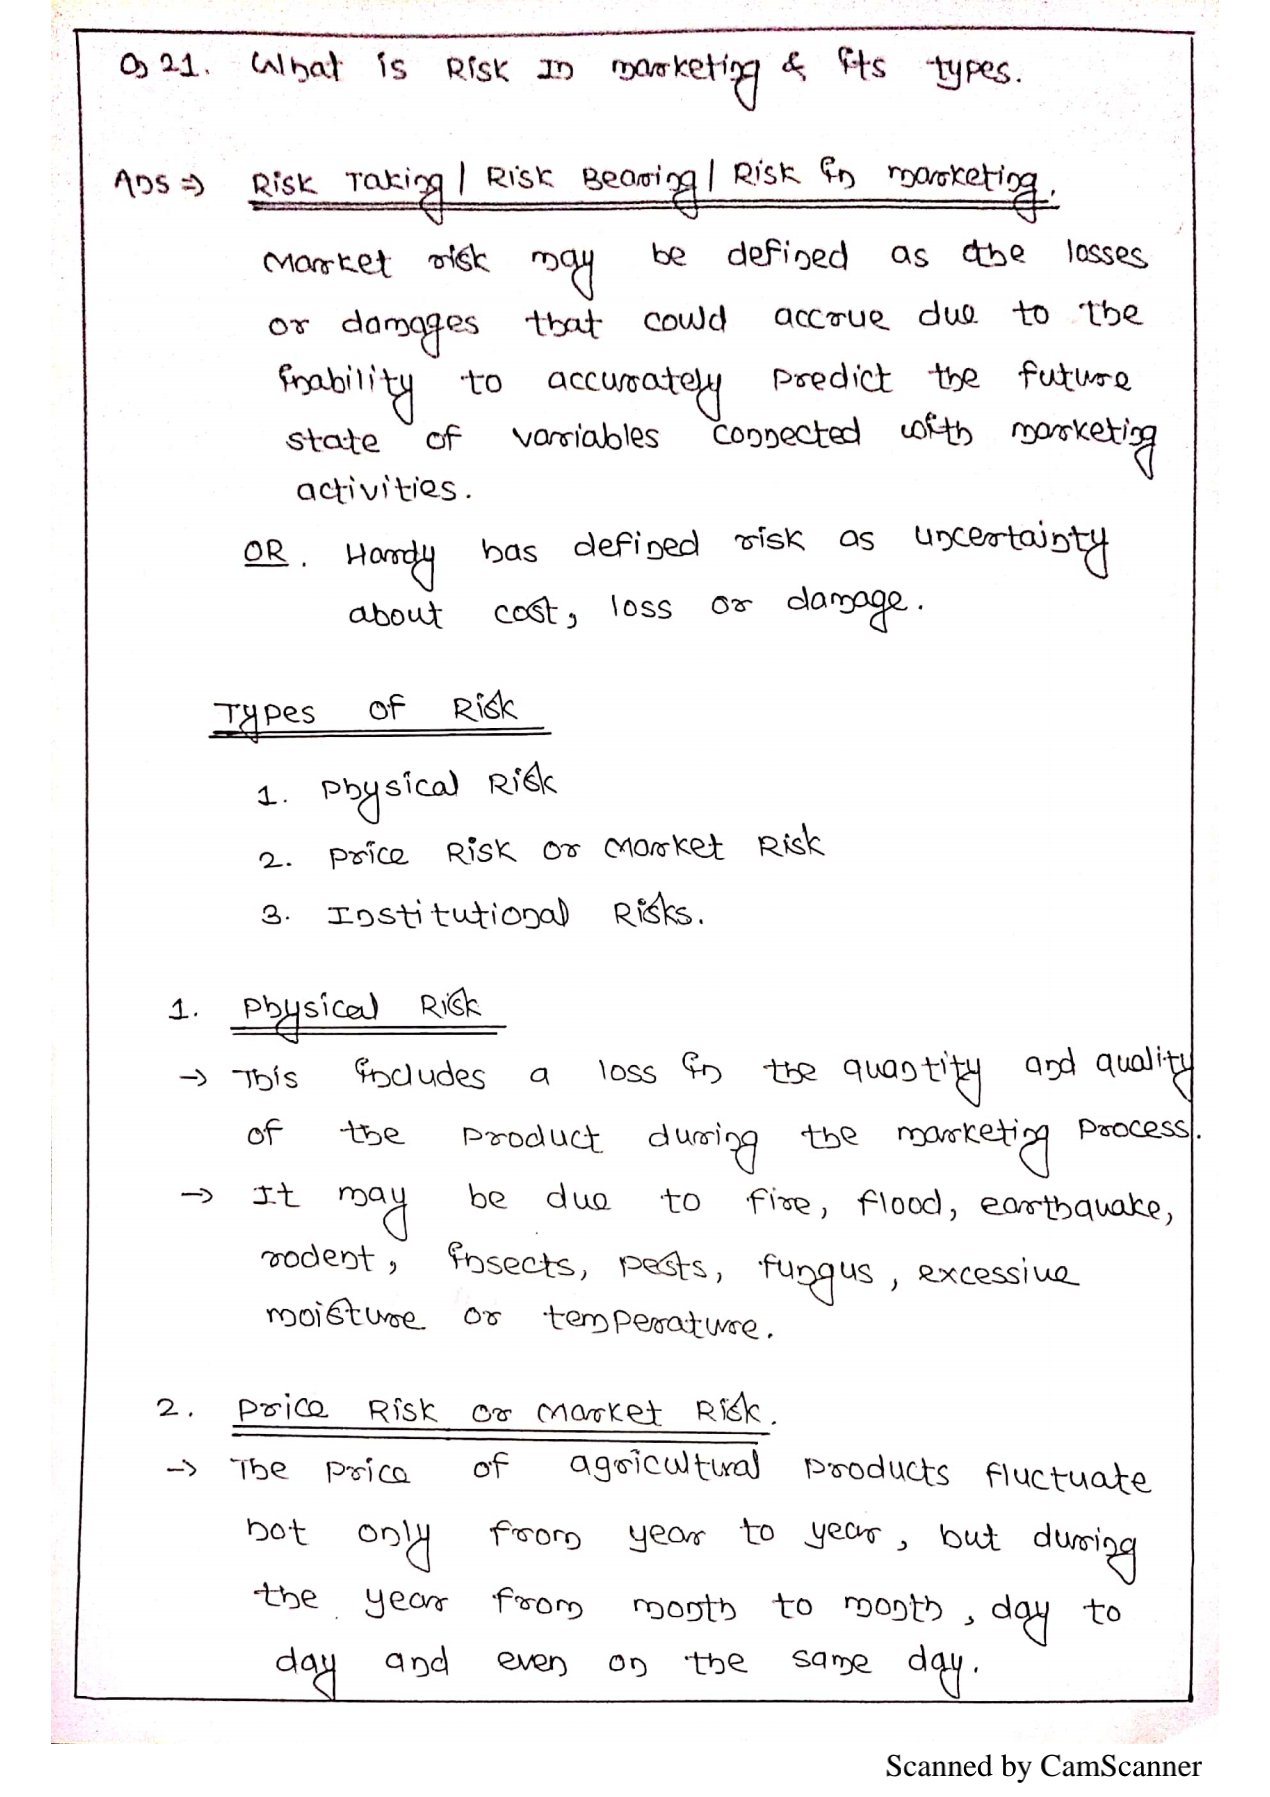 Q 21. What is Risk In marketing & its types.
Ans ⇒ Risk Taking / Risk Bearing / Risk in marketing.
Market risk may be defined as the losses
or damages that could accrue due to the
inability to accurately predict the future
state of variables connected with marketing
activities.
OR. Hardy has defined risk as uncertainty
about cost, loss or damage.
Types of Risk
1. Physical Risk
2. Price Risk or Market Risk
3. Institutional Risks.
1. Physical Risk
→ This includes a loss in the quantity and quality
of the product during the marketing process.
→ It may be due to fire, flood, earthquake,
rodent, insects, pests, fungus, excessive
moisture or temperature.
2. Price Risk or Market Risk.
→ The price of agricultural products fluctuate
not only from year to year, but during
the year from month to month, day to
day and even on the same day.
Scanned by CamScanner